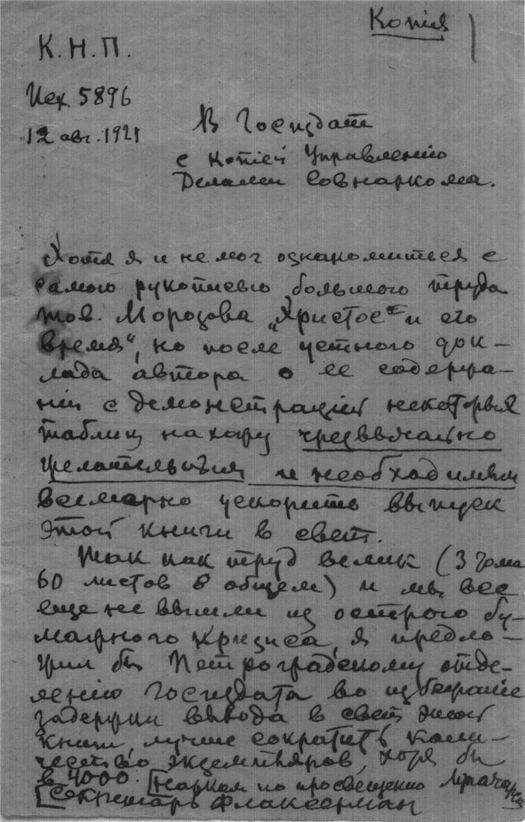 Копія
К.Н.П.
Исх. 5896
12 авг. 1921
В Госиздат
с копіей Управленію
Делами Совнаркома.
Хотя я и не мог ознакомиться с
самою рукописью большого труда
тов. Морозова „Христос" и его
время", но после устного док-
лада автора о ее содержа-
ніи с демонстраціей некоторых
таблиц нахожу чрезвычайно
желательным и необходимым
всемерно ускорить выпуск
этой книги в свет.
Так как труд велик (3 тома
60 листов в общем) и мы все
еще не вышли из острого бу-
мажного кризиса, я предло-
жил бы Петроградскому отде-
ленію Госиздата во избежаніе
задержки выхода в свет этой
книги, лучше сократить коли-
чество экземпляров, хотя бы
в 4000. [Нарком по просвещению Луначарск
[Секретарь Флаксерман